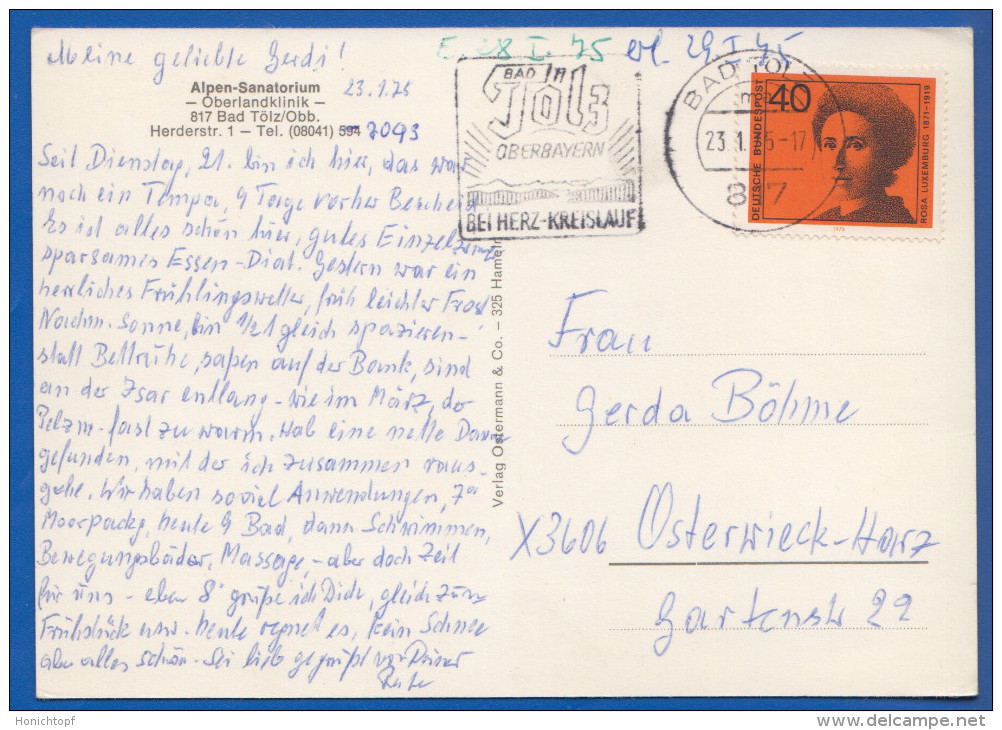 Meine geliebte Gerdi!
E. 28 I. 75 erl. 29 I 75
Alpen-Sanatorium
– Oberlandklinik –
817 Bad Tölz/Obb.
Herderstr. 1 – Tel. (08041) 594
7093
23.1.75
Seit Dienstag, 21. bin ich hier, das war
noch ein Tempo, 4 Tage vorher Bescheid
Es ist alles schön hier, gutes Einzelzimm
sparsames Essen - Diät. Gestern war ein
herrliches Frühlingswetter, früh leichter Frost,
Nachm. Sonne, bin 1/21 gleich spazieren-
statt Bettruhe, saßen auf der Bank, sind
an der Isar entlang - wie im März, der
Pelzm. fast zu warm. Hab eine nette Dame
gefunden, mit der ich zusammen raus-
gehe. Wir haben soviel Anwendungen, 7°°
Moorpackg, heute 9 Bad, dann Schwimmen,
Bewegungsbäder, Massage, - aber doch Zeit
für uns - eben 8° grüße ich Dich, gleich zum
Frühstück usw. heute regnet es, kein Schnee
aber alles schön. Sei lieb gegrüßt von Deiner
BAD TÖLZ
IN
OBERBAYERN
BEI HERZ-KREISLAUF
BAD TÖL
23.1. 5-17
8 7
40
DEUTSCHE BUNDESPOST
ROSA LUXEMBURG 1871-1919
Verlag Ostermann & Co. – 325 Hameln
Frau
Gerda Böhme
X3606 Osterwieck-Harz
Gartenstr 22
Honichtopf
www.delcampe.net